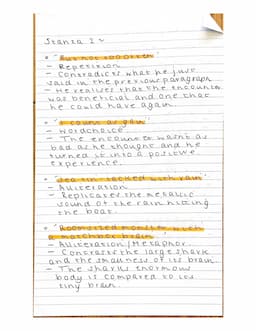 Stanza 2 ~
• 'But not too often'
- Repetition
- Contradicts what he just
said in the previous paragraph
- He realises that the encounter
was beneficial and one that
he could have again.
• 'I count as gain'
- Wordchoice
- The encounter wasn't as
bad as he thought and he
turned it into a positive
experience.
• 'Sea tin-tacked with rain'
- Alliteration
- Replicates the metallic
sound of the rain hitting
the boat.
• 'Roomsized monster with
a matchbox brain'
- Alliteration/Metaphor
- Contrasts the large shark
and the smallness of its brain.
- The sharks enormous
body is compared to its
tiny brain.